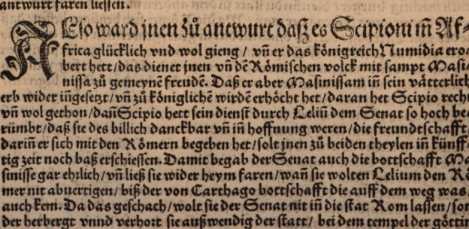 antwurt faren liessen.
Also ward jnen zů antwurt daß es Scipioni iñ Af-
frica glücklich vnd wol gieng / vñ er das königreich Numidia ero
bert hett / das dienet jnen vñ dē Römischen volck mit sampt Masi
nissa zů gemeynē freudē. Daß er aber Masinissam iñ sein vätterlich
erb wider iñgesetzt / vñ zů königlichē wirdē erhöcht het / daran het Scipio recht
vñ wol gethon / dañ Scipio hett sein dienst durch Leliū dem Senat so hoch be
rümbt / daß sie des billich danckbar vñ iñ hoffnung weren / die freundtschafft
dariñ er sich mit den Römern begeben het / solt jnen zů beiden theylen iñ künff
tig zeit noch baß erschiessen. Damit begab der Senat auch die bottschafft Ma
sinisse gar ehrlich / vñ ließ sie wider heym faren / wañ sie wolten Lelium den Rö
mer nit abuertigen / biß der von Carthago bottschafft die auff dem weg was
auch kem. Da das geschach / wolt sie der Senat nit iñ die stat Rom lassen / son
der herbergt vnnd verhort sie außwendig der statt / bei dem tempel der göttin